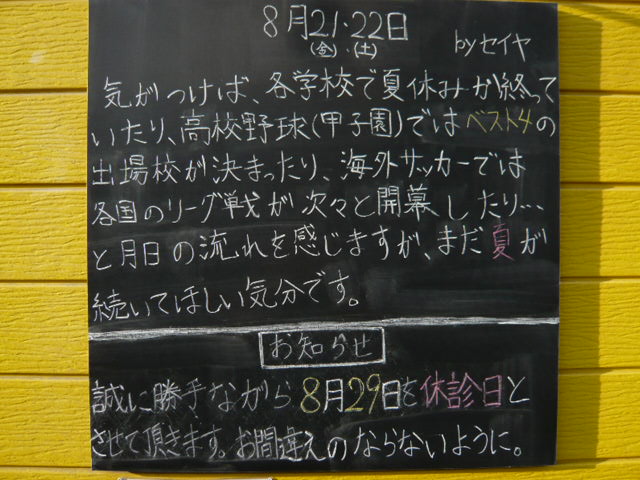 8月21・22日
(金)・(土)
byセイヤ
気がつけば、各学校で夏休みが終って
いたり、高校野球(甲子園)ではベスト4の
出場校が決まったり、海外サッカーでは
各国のリーグ戦が次々と開幕したり…
と月日の流れを感じますが、まだ夏が
続いてほしい気分です。
お知らせ
誠に勝手ながら8月29日を休診日と
させて頂きます。お間違えのならないように。